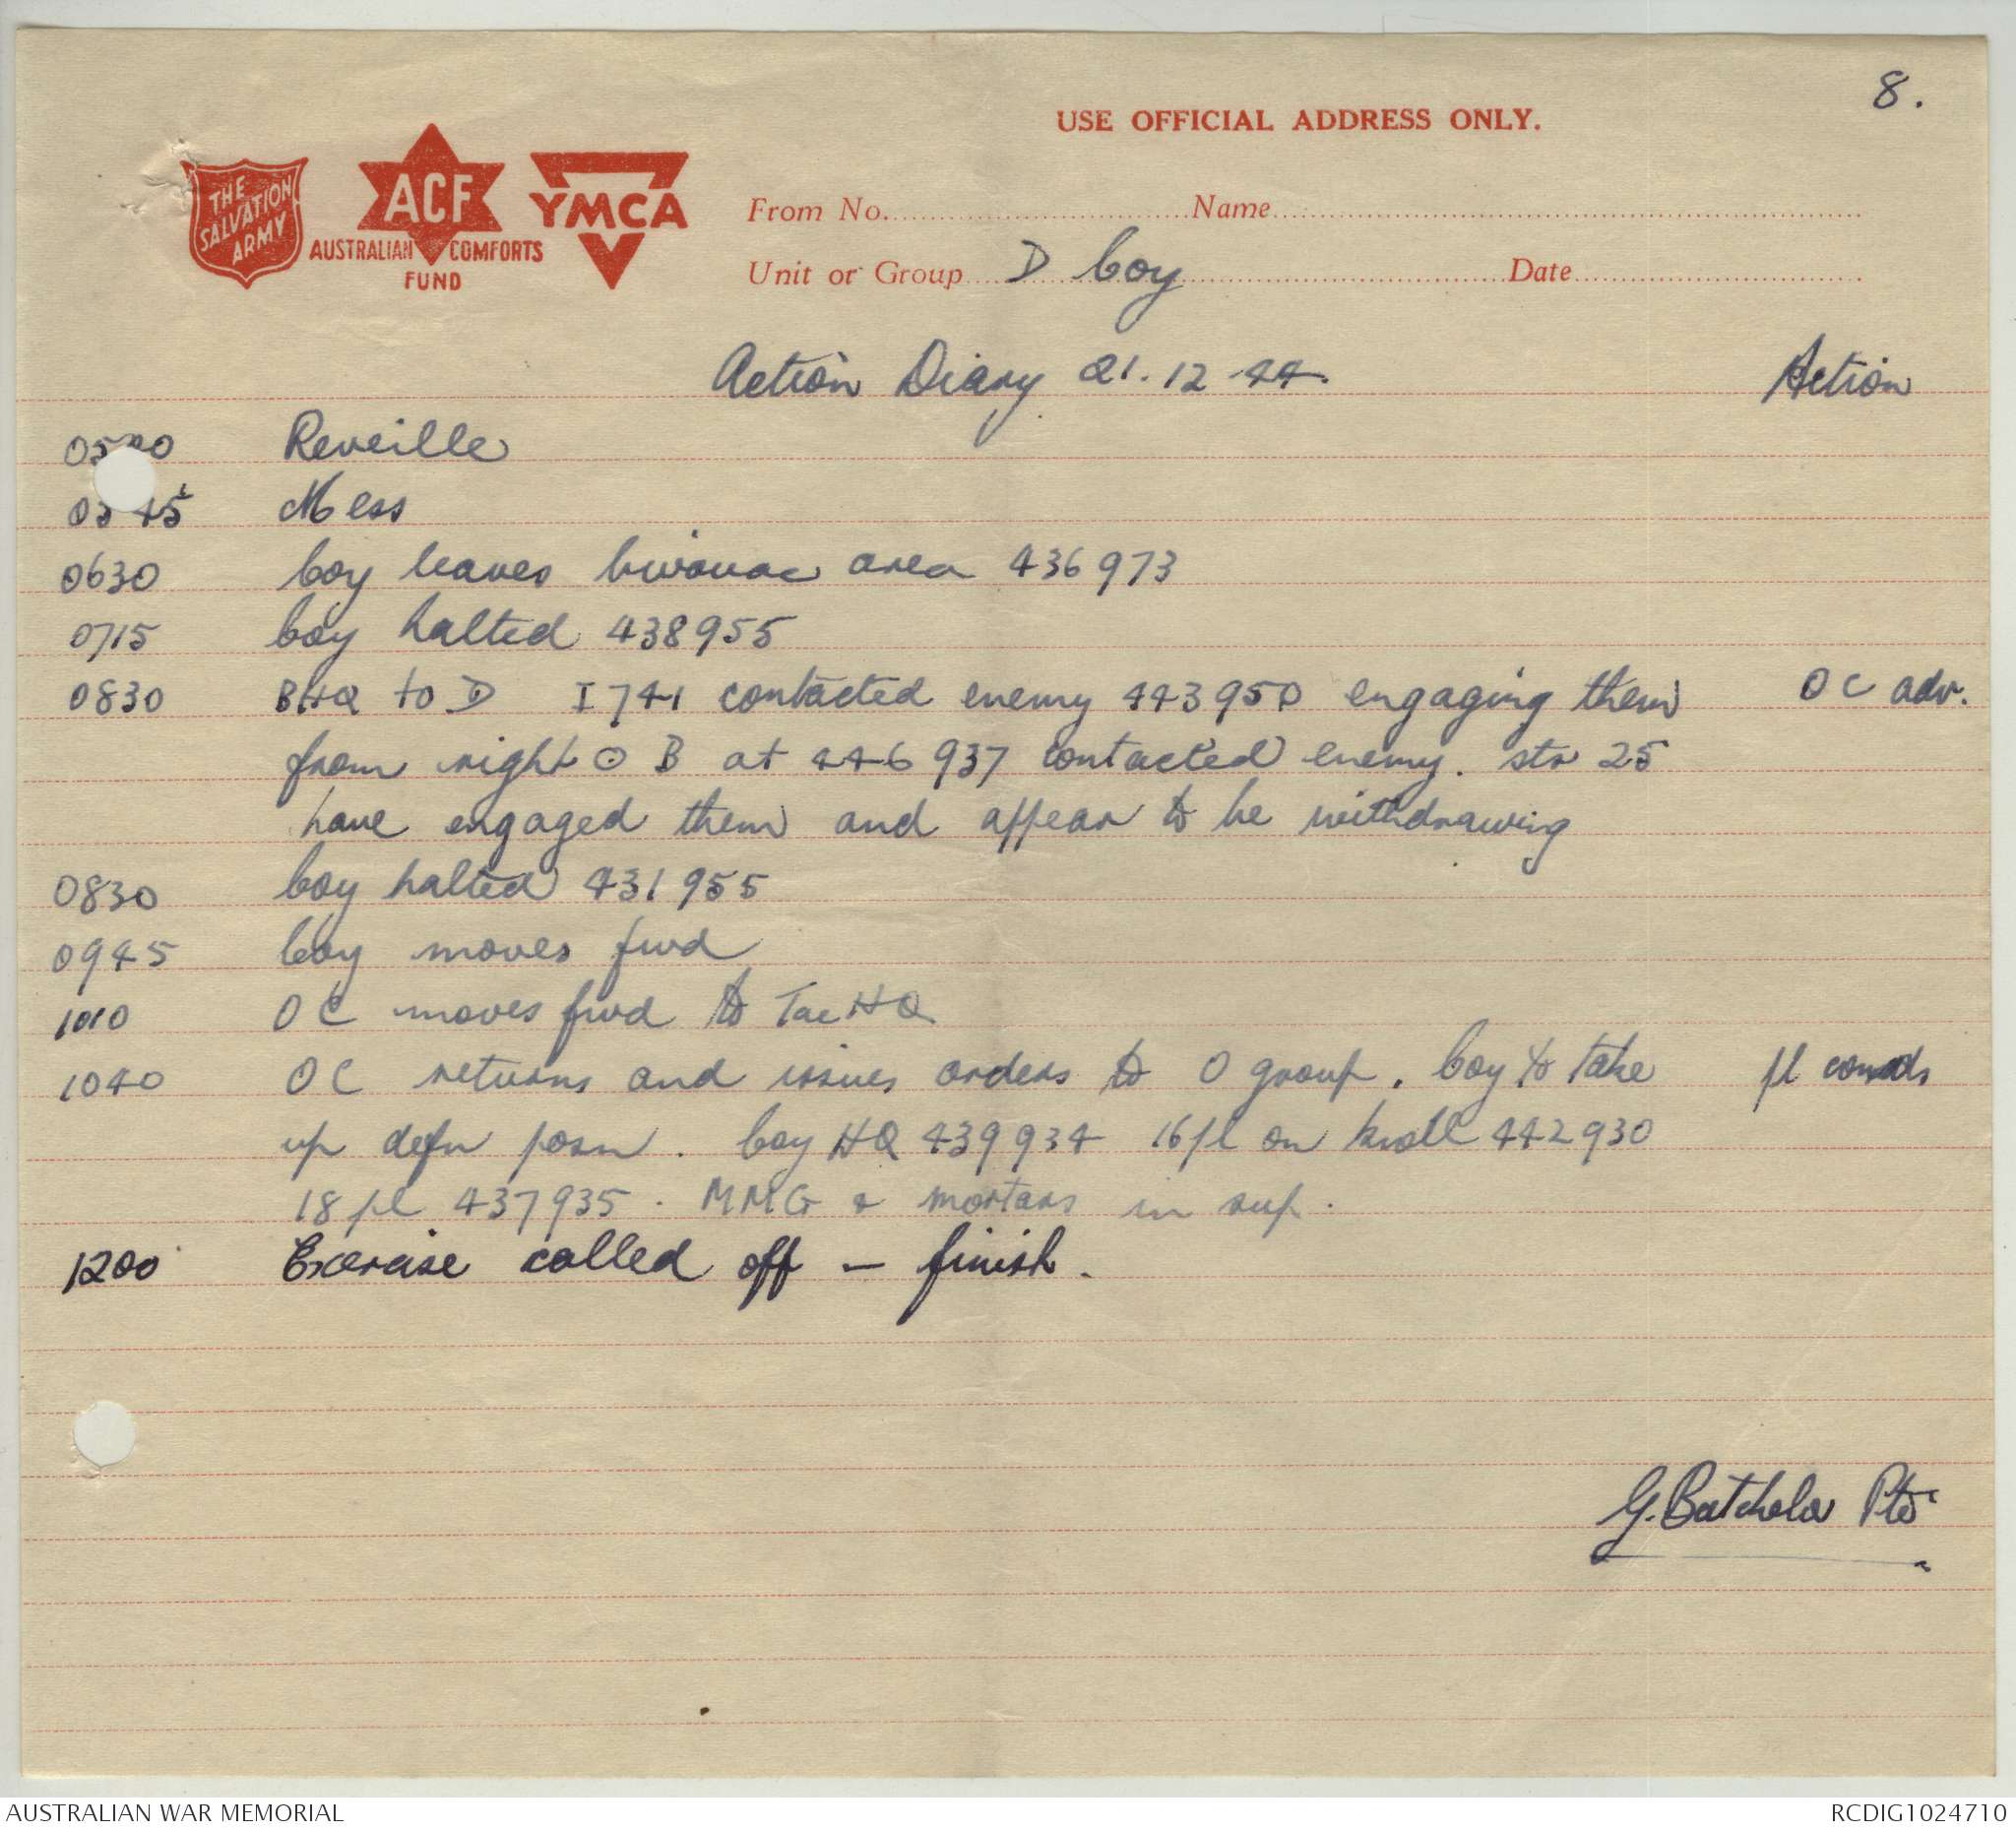 8.
USE OFFICIAL ADDRESS ONLY.
THE
SALVATION
ARMY
ACF
AUSTRALIAN COMFORTS
FUND
YMCA
From No. Name
Unit or Group D Coy Date
Action Diary 21.12.44. Action
0500 Reveille
0545 Mess
0630 Coy leaves bivouac area 436973
0715 Coy halted 438955
0830 BHQ to D I741 contacted enemy 443950 engaging them OC adv.
from right ⊙ B at 446937 contacted enemy. str 25
have engaged them and appear to be withdrawing
0830 Coy halted 431955
0945 Coy moves fwd
1010 OC moves fwd to Tac HQ
1040 OC returns and issues orders to O group. Coy to take pl comds
up defn posn. Coy HQ 439934 16pl on knoll 442930
18pl 437935. MMG & mortars in sup.
1200 Exercise called off - finish.
G. Batchelor Pte
AUSTRALIAN WAR MEMORIAL RCDIG1024710